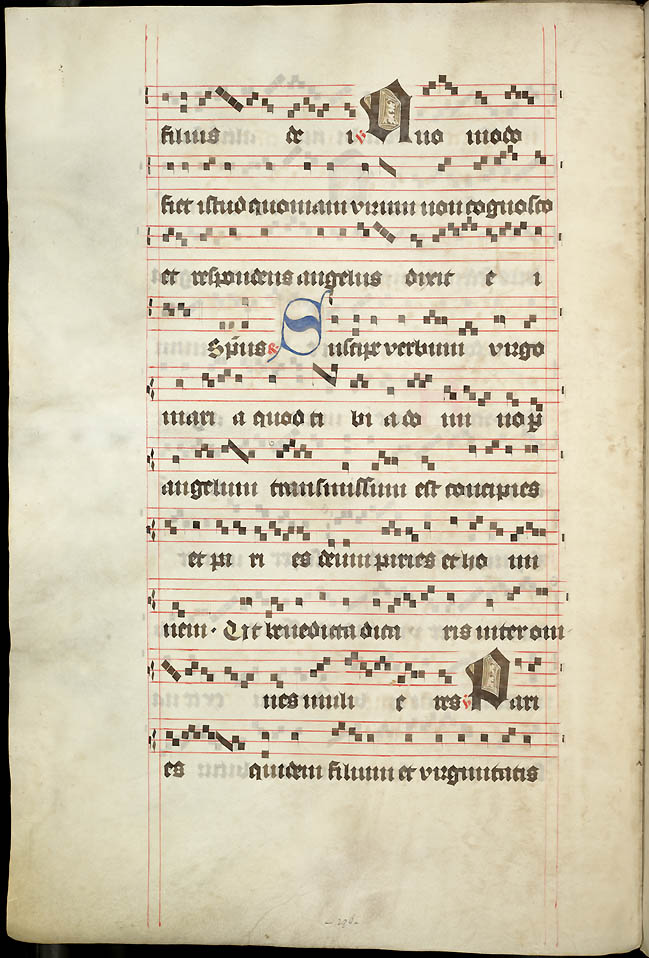 filius de i ℣ Quo modo
fiet istud quoniam virum non cognosco
et respondens angelus dixit e i
Sp̄us ℟ Suscipe verbum virgo
mari a quod ti bi a do mi no ꝑ
angelum transmissum est concipies
et pa ri es deum paries et ho mi
nem · Ut benedicta dica ris inter om
nes muli e res ℣ Pari
es quidem filium et virginitatis